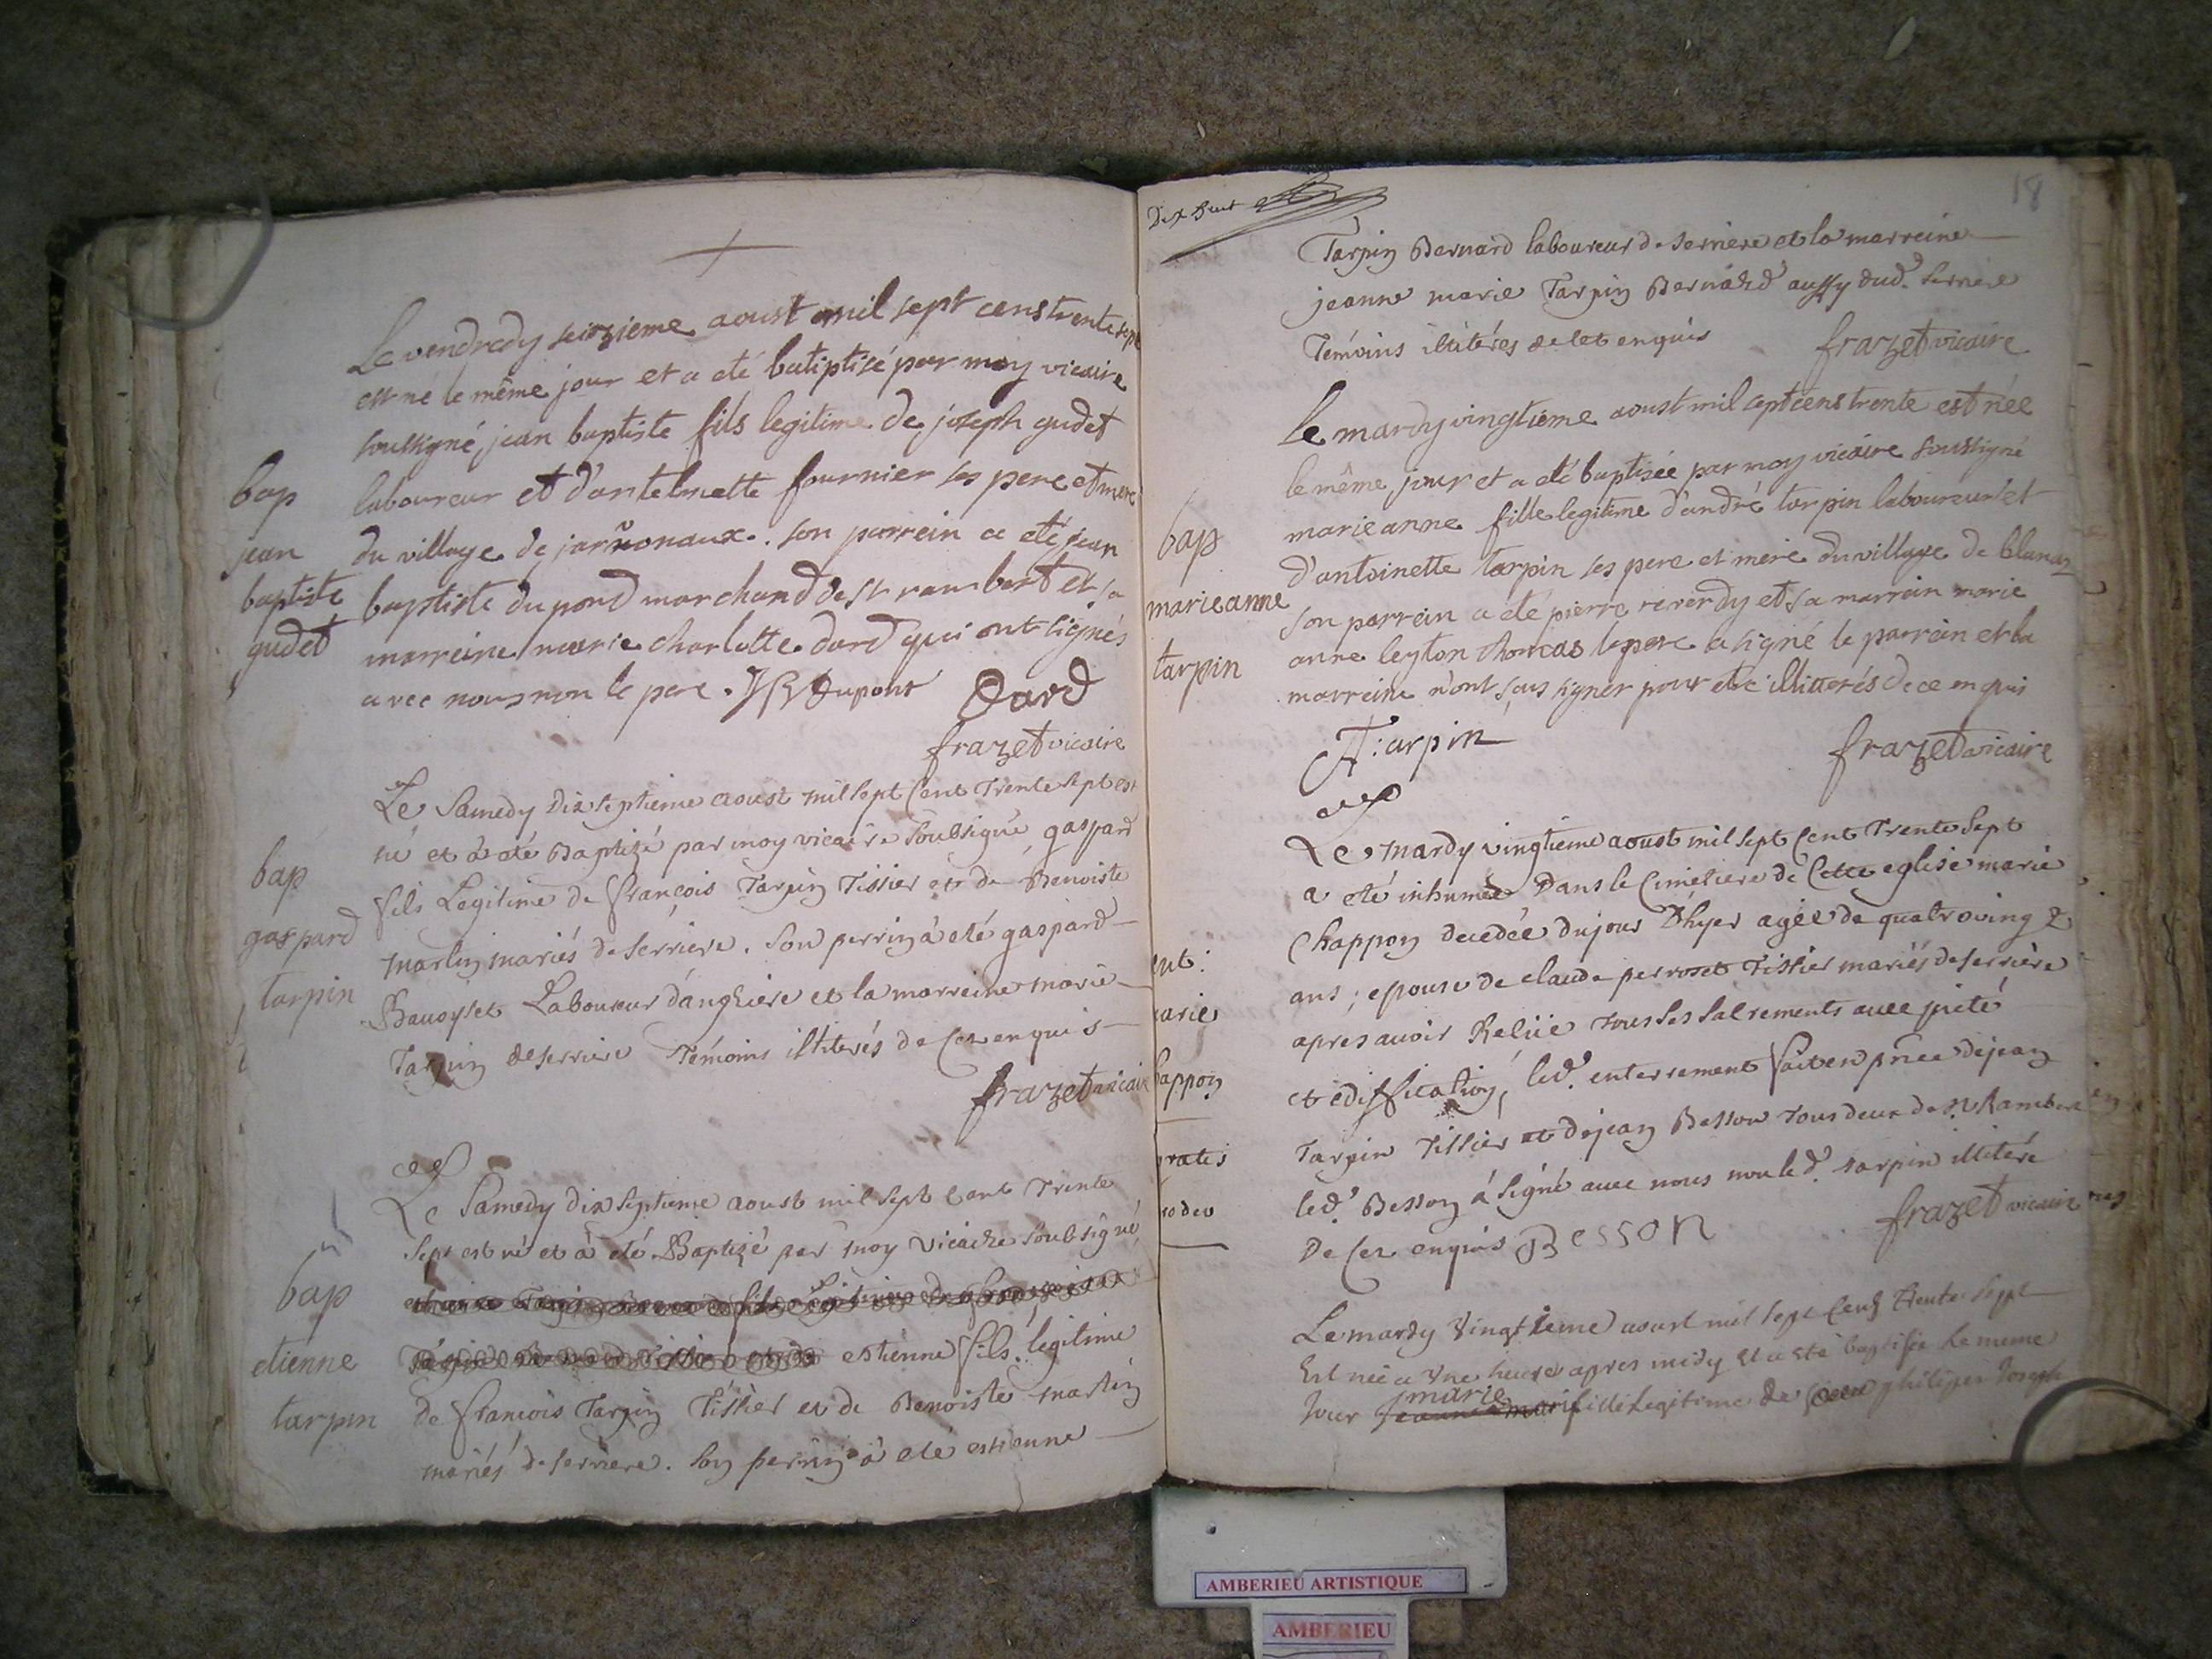 Le vendredy seizieme aoust mil sept cens trente sept
est né le même jour et a eté batiptisé par moy vicaire
soussigné jean baptiste fils legitime de joseph gudet
bap
laboureur et d'antelmette fournier ses pere et mere
jean
du village de jarvonaux. son parrein a eté jean
baptiste
baptiste dupond marchand de st rambert et sa
gudet
marreine marie charlotte dard qui ont signés
avec nous non le pere. JB Dupont Dard
frazet vicaire
Le Samedy dix septieme aoust mil sept Cent Trente sept est
bap
né et à eté Baptizé par moy vicaire Soubsigné, gaspard
gaspard
fils Legitime de françois Tarpin Tissier et de Benoiste
tarpin
martin mariés de serriere. son perrin à eté gaspard
Laboureur d'anghiere et la marreine marie
Tarpin de serriere Temoins illiterés de ce enquis
frazet vicaire
Le Samedy dix septieme aoust mil sept Cent Trente
Sept est né et à eté Baptizé par moy vicaire Soubsigné,
bap
etienne
estienne fils legitime
tarpin
de françois Tarpin Tissier et de Benoiste martin
mariés de serriere. son perrin à eté estienne
Dix huit
18
Tarpin Bernard laboureur de serriere et la marreine
jeanne marie Tarpin Bernard aussy dud. serriere
Témoins illitérés de ce enquis frazet vicaire
Le mardy vingtième aoust mil sept cens trente est née
le même jour et a eté baptisée par moy vicaire soussigné
bap
marie anne fille legitime d'andré tarpin laboureur et
marie anne
d'antoinette tarpin ses pere et mere du village de blanaz
tarpin
son parrein a eté pierre reverdy et sa marrein marie
anne leyton thomas le pere a signé le parrein et la
marreine n'ont sçus signer pour etre illitterés de ce enquis
A: tarpin frazet vicaire
Le mardy vingtieme aoust mil sept Cent Trente Sept
a eté inhumée Dans le Cimetiere de Cette eglise marie
Chappon decedée du jour D'hyer agée de quatre vingt
ans; epouse de claude perroset Tissier mariés de serriere
aprés avoir Reçüe tous ses Sacrements avec pieté
et édiffication, led. enterrement fait en pnce de jean
Tarpin Tissier et de jean Besson Tous deux de St Rambert
led. Besson à signé avec nous non led. tarpin illitéré
De Ce enquis Besson frazet vicaire
ent:
arie
happon
gratis
ro deo
Le mardy Vingtieme aoust mil sept Cens trente sept
Est née a Vne heure apres midy et a eté baptisée le meme
Jour marie fille Legitime de philiper Joseph
AMBERIEU ARTISTIQUE
AMBERIEU